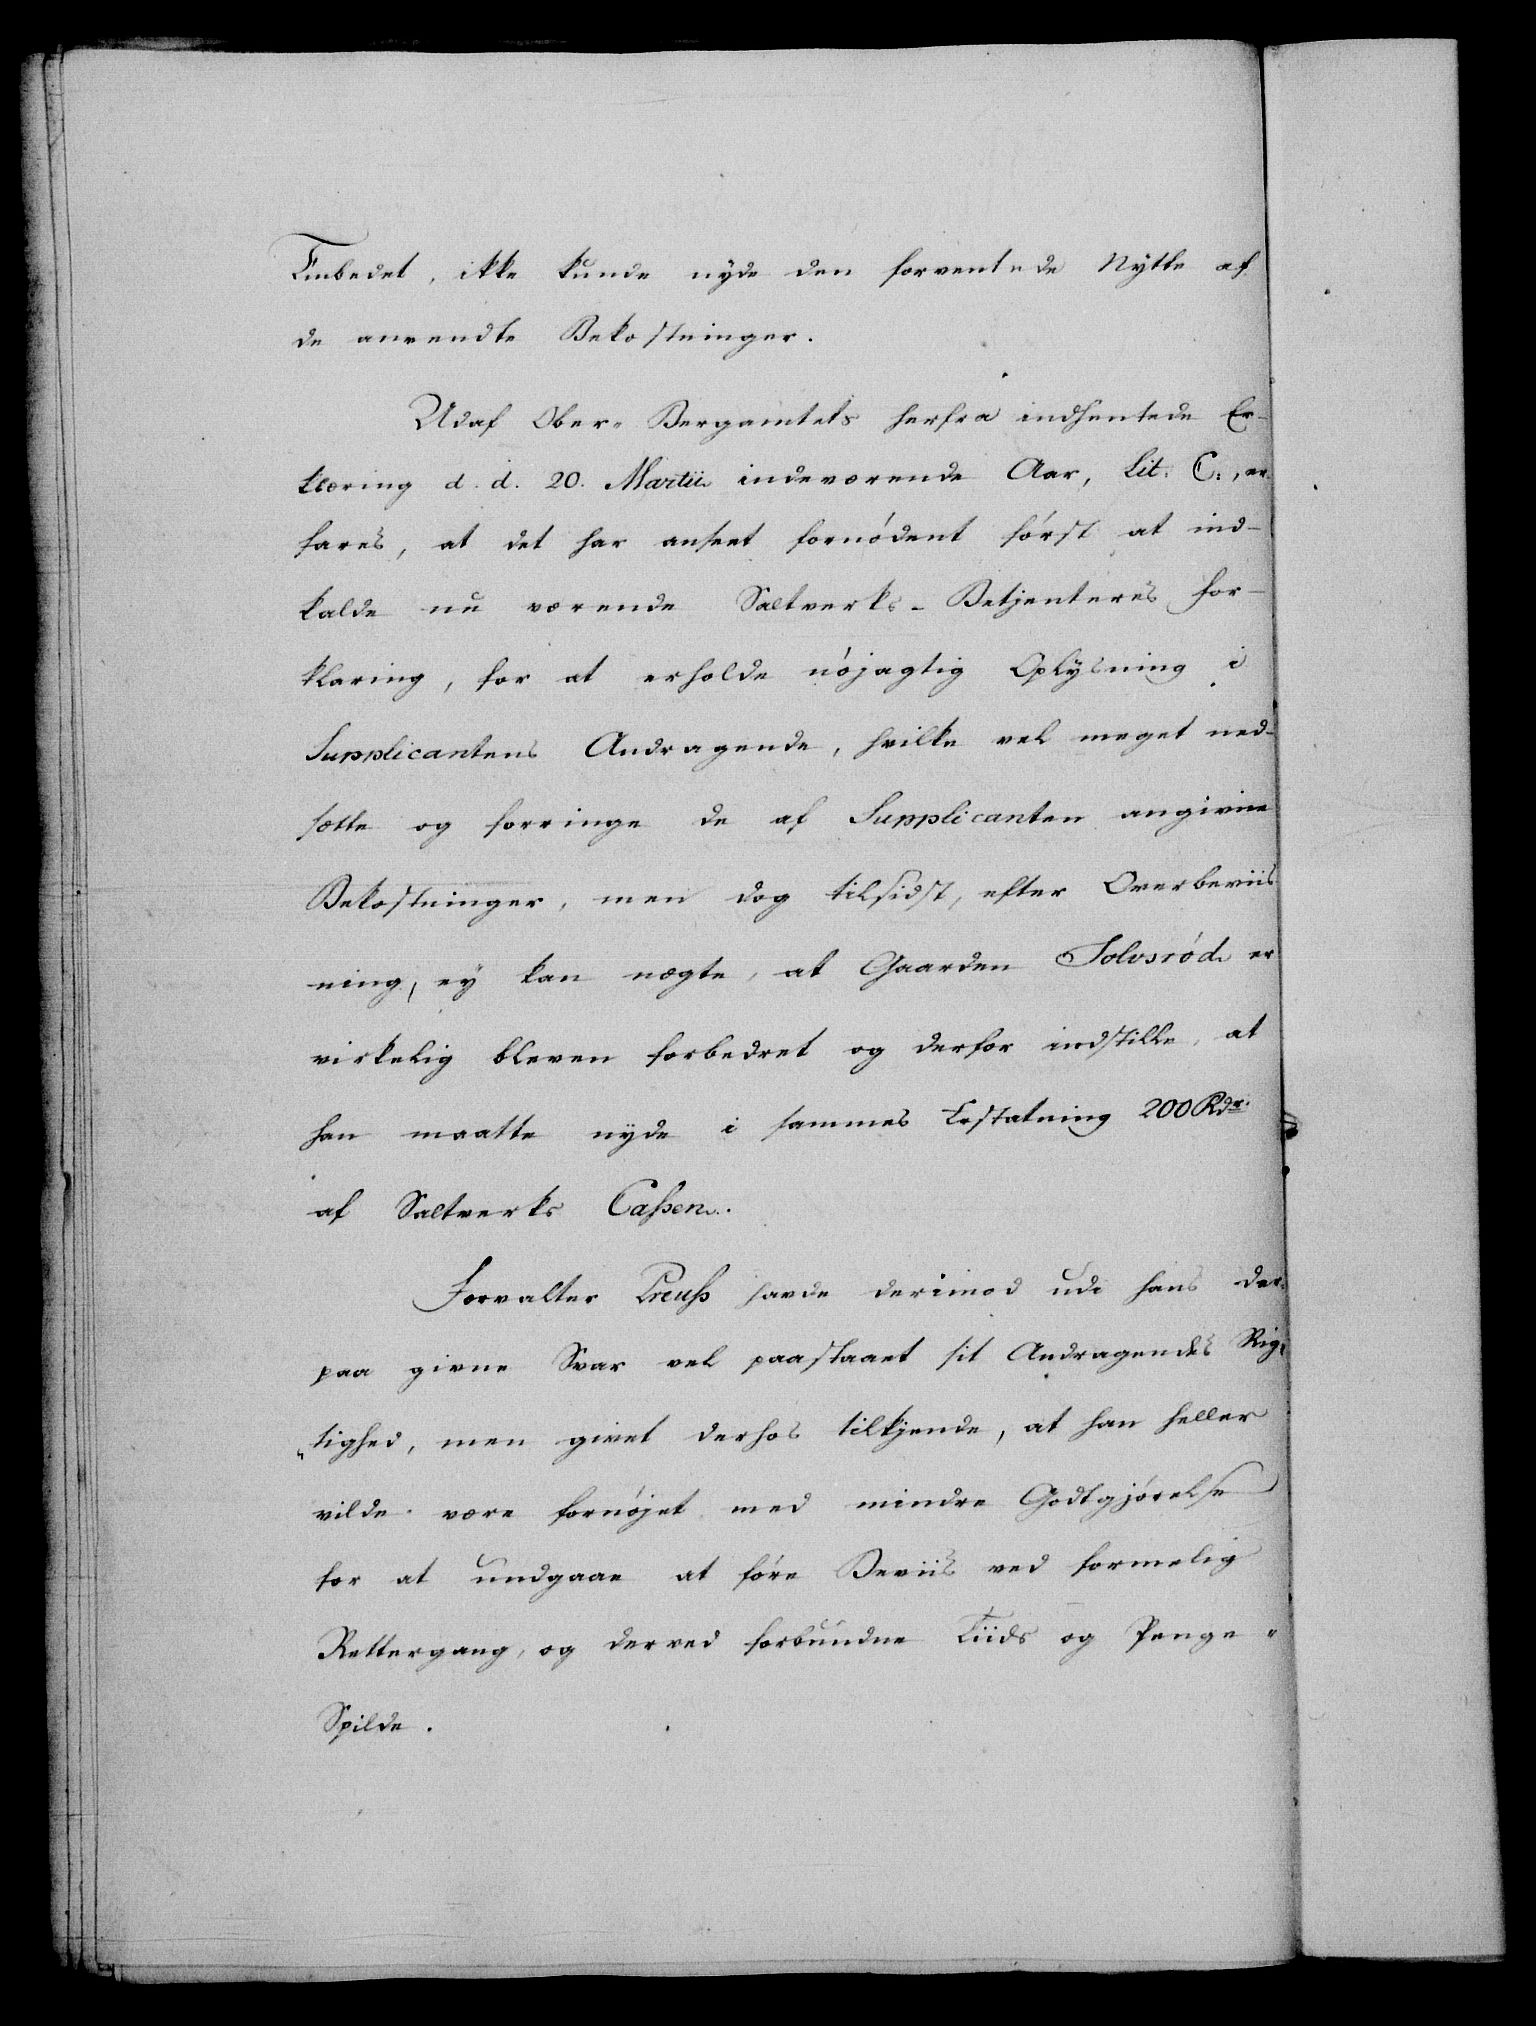 Embedet, ikke kunde nyde den forventede Nytte af
de anvendte Bekostninger.
Udaf Ober-Bergamtets herfra indhentede Er-
klæring d. d. 20. Martii indeværende Aar, Lit. C:, er-
fares, at det har anseet fornødent først at ind-
kalde nu værende Saltverks-Betjenteres For-
klaring, for at erholde nøjagtig Oplysning i
Supplicantens Andragende, hvilke vel meget ned-
sætte og forringe de af Supplicanten angivne
Bekostninger, men dog tilsidst, efter Overbeviis
ning, ey kan nægte, at Gaarden Solvsrød er
virkelig bleven forbedret og derfor indstille, at
han maatte nyde i sammes Erstatning 200 Rdr.
af Saltverks Cassen.
Forvalter Preuss havde derimod udi hans der-
paa givne Svar vel paastaaet sit Andragendes Rig-
"tighed, men givet derhos tilkjende, at han heller
vilde være fornøjet med mindre Godtgjørelse
for at undgaae at føre Beviis ved formelig
Rettergang, og derved forbundne Tiids og Penge"
Spilde.